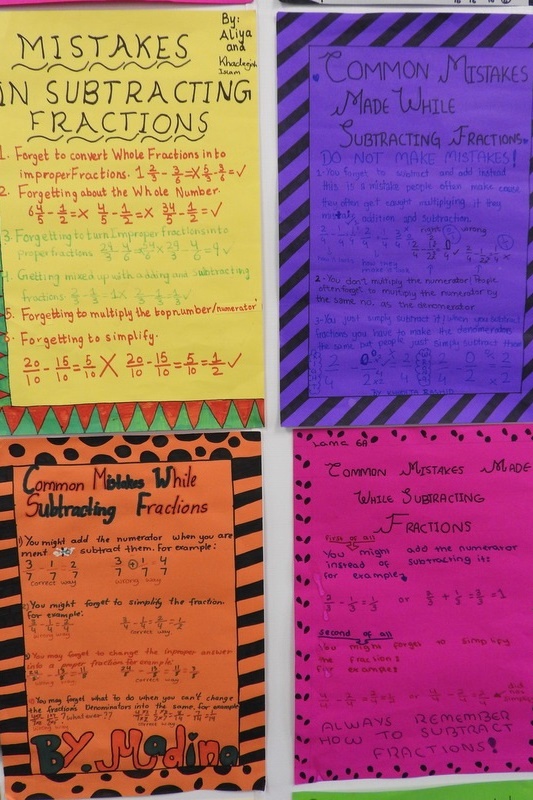 By:
Aliya
and
Khadegih
Islam
MISTAKES
IN SUBTRACTING
FRACTIONS
1. Forget to convert Whole Fractions into
improper Fractions.
2. Forgetting about the Whole Number.
6 4/5 - 1/2 = X 4/5 - 1/2 = X 34/5 - 1/2 = ✓
3. Forgetting to turn Improper fractions into
proper fractions.
4. Getting mixed up with adding and subtracting
fractions.
5. Forgetting to multiply the top number/numerator.
6. Forgetting to simplify.
20/10 - 15/10 = 5/10 X 20/10 - 15/10 = 5/10 = 1/2 ✓
COMMON MISTAKES
MADE WHILE
SUBTRACTING FRACTIONS
DO NOT MAKE MISTAKES!
1-You forget to subtract and add instead
this is a mistake people often make cause
they often get caught multiplying, if they
addition and subtraction.
right wrong
2-You don't multiply the numerator/People
often forget to multiply the numerator by
the same no. as the denomerator
3-You just simply subtract it/when you subtract
fractions you have to make the denomerators
the same but people just simply subtract them
Common Mistakes While
Subtracting Fractions
1) You might add the numerator when you are
ment to subtract them. For example:
3/7 - 1/7 = 2/7 3/7 + 1/7 = 4/7
correct way wrong way
You might forget to simplify the fraction.
for example:
3/4 - 1/4 = 2/4 3/4 - 1/4 = 2/4 = 1/2
wrong way correct way
You may forget to change the inproper answer
into a proper fraction for example:
wrong way correct way
You may forget what to do when you can't change
the fractions Denominators into the same. for example
By. Madina
Lamc 6A
COMMON MISTAKES MADE
WHILE SUBTRACTING
FRACTIONS
first of all
You might add the numerator
instead of subtracting it:
for example:
2/3 - 1/3 = 1/3 or
second of all
You might forget to simplify
the fraction:
example:
ALWAYS REMEMBER
HOW TO SUBTRACT
FRACTIONS!